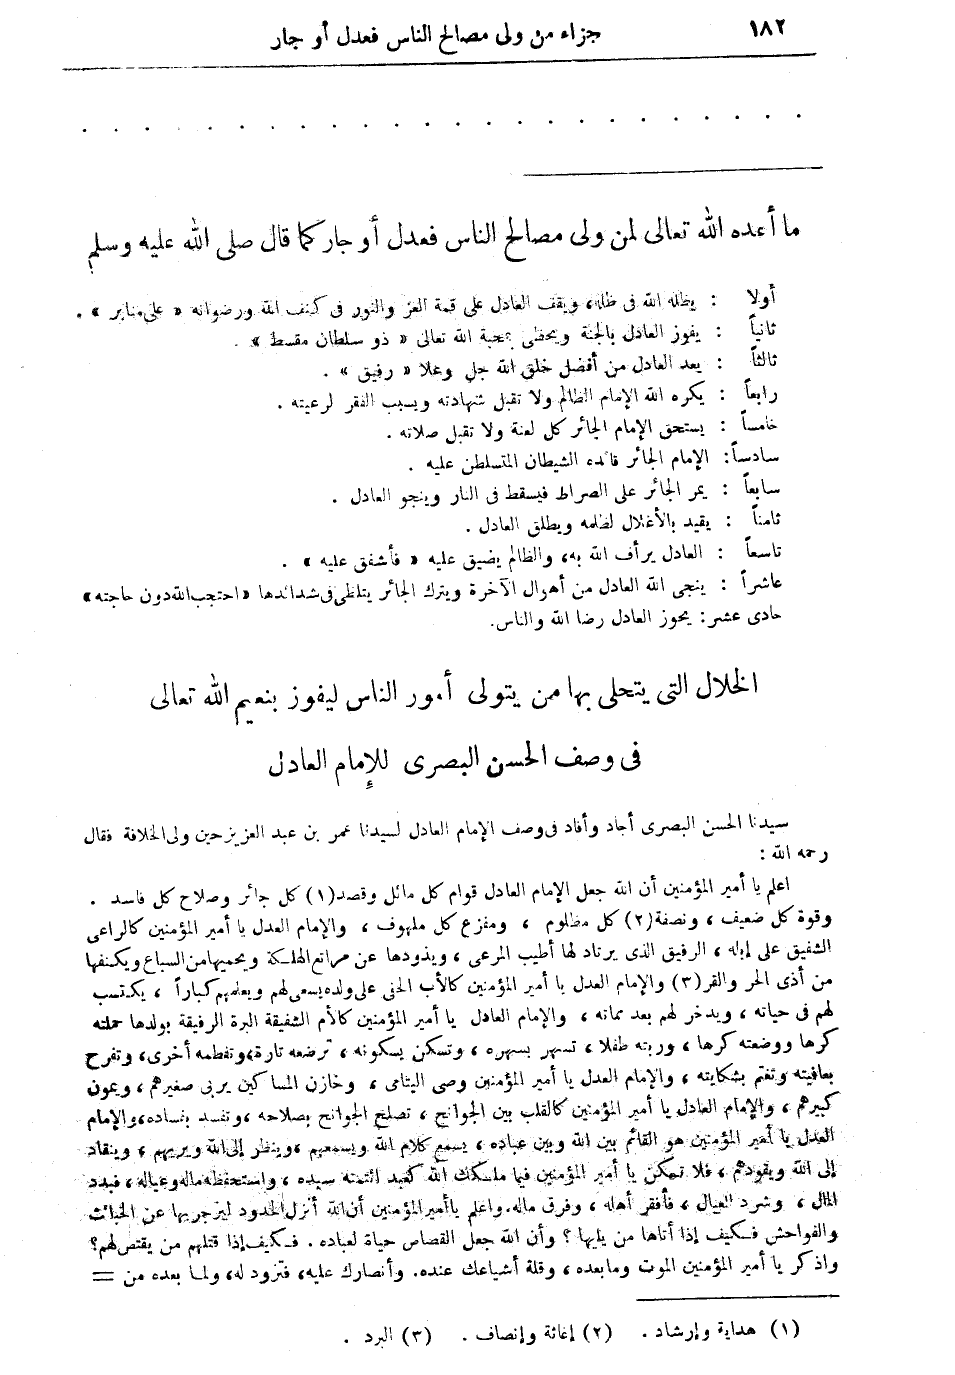 ١٨٢
جزاء من ولى مصالح الناس فعدل أو جار
. . . . . . . . . . . . . . . . . . . . . . . .
ما أعده الله تعالى لمن ولى مصالح الناس فعدل أو جار كما قال صلى الله عليه وسلم
أولا : يظله الله فى ظله، ويقف العادل على قمة العز والنور فى كنف الله ورضوانه « على منابر » .
ثانياً : يفوز العادل بالجنة ويحظى بمحبة الله تعالى « ذو سلطان مقسط » .
ثالثاً : يعد العادل من أفضل خلق الله جل وعلا « رفيق » .
رابعاً : يكره الله الإمام الظالم ولا تقبل شهادته ويسبب الفقر لرعيته .
خامساً : يستحق الإمام الجائر كل لعنة ولا تقبل صلاته .
سادساً : الإمام الجائر قائده الشيطان المتسلطن عليه .
سابعاً : يمر الجائر على الصراط فيسقط فى النار وينجو العادل .
ثامناً : يقيد بالأغلال لظلمه ويطلق العادل .
تاسعاً : العادل يرأف الله به، والظالم يضيق عليه « فأشفق عليه » .
عاشراً : ينجى الله العادل من أهوال الآخرة ويترك الجائر يتلظى فى شدائدها « احتجب الله دون حاجته »
حادى عشر: يحوز العادل رضا الله والناس.
الخلال التى يتحلى بها من يتولى أمور الناس ليفوز بنعيم الله تعالى
فى وصف الحسن البصرى للإمام العادل
سيدنا الحسن البصرى أجاد وأفاد فى وصف الإمام العادل لسيدنا عمر بن عبد العزيز حين ولى الخلافة فقال
رحمه الله :
اعلم يا أمير المؤمنين أن الله جعل الإمام العادل قوام كل مائل وقصد(١) كل جائر وصلاح كل فاسد .
وقوة كل ضعيف ، ونصفة(٢) كل مظلوم ، ومفزع كل ملهوف ، والإمام العدل يا أمير المؤمنين كالراعى
الشفيق على إبله ، الرفيق الذى يرتاد لها أطيب المرعى ، ويذودها عن مراتع الهلكة ويحميها من السباع ويكنفها
من أذى الحر والقر(٣) والإمام العدل يا أمير المؤمنين كالأب الحنى على ولده يسعى لهم ويعلمهم كباراً ، يكتسب
لهم فى حياته ، ويدخر لهم بعد مماته ، والإمام العادل يا أمير المؤمنين كالأم الشفيقة البرة الرفيقة بولدها حملته
كرها ووضعته كرها ، وربته طفلا ، تسهر بسهره ، وتسكن بسكونه ، ترضعه تارة، وتفطمه أخرى، وتفرح
بعافيته وتغتم بشكايته ، والإمام العدل يا أمير المؤمنين وصى اليتامى ، وخازن المساكين يربى صغيرهم ، ويمون
كبيرهم ، والإمام العادل يا أمير المؤمنين كالقلب بين الجوانح ، تصلح الجوانح بصلاحه ، وتفسد بفساده، والإمام
العدل يا أمير المؤمنين هو القائم بين الله وبين عباده ، يسمع كلام الله ويسمعهم ، وينظر إلى الله ويريهم ، وينقاد
إلى الله ويقودهم ، فلا تمكن يا أمير المؤمنين فيما ملكك الله كعبد ائتمنه سيده ، واستحفظه ماله وعياله ، فبدد
المال ، وشرد العيال ، فأفقر أهله ، وفرق ماله. واعلم يا أمير المؤمنين أن الله أنزل الحدود ليزجر بها عن الخبائث
والفواحش فكيف إذا أتاها من يليها ؟ وأن الله جعل القصاص حياة لعباده . فكيف إذا قتلهم من يقتص لهم؟
واذكر يا أمير المؤمنين الموت وما بعده ، وقلة أشياعك عنده. وأنصارك عليه، فتزود له، ولما بعده من =
(١) هداية وإرشاد . (٢) إغاثة وإنصاف . (٣) البرد .